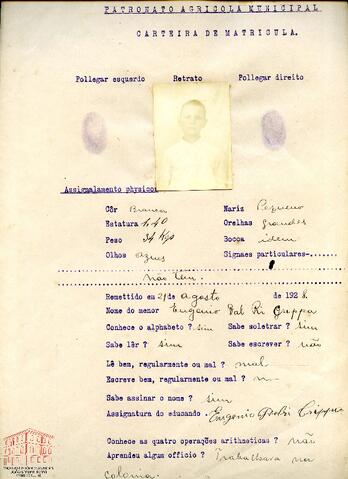 PATRONATO AGRICOLA MUNICIPAL
CARTEIRA DE MATRICULA.
Pollegar esquerdo Retrato Pollegar direito
Assignalamento physico
Côr Branca Nariz Pequeno
Estatura 1,40 Orelhas grandes
Peso 34 Kgs Bocca idem
Olhos azues Signaes particulares-
não tem.
Remettido em 21 de agosto de 1928.
Nome do menor Eugenio Dal Ri Grippa
Conhece o alphabeto? sim Sabe soletrar? sim
Sabe lêr? sim Sabe escrever? não
Lê bem, regularmente ou mal? mal
Escreve bem, regularmente ou mal?
Sabe assinar o nome? sim
Assignatura do educando. Eugenio
Conhece as quatro operações arithmeticas? não
Aprendeu algum officio? Trabalhava na
colonia.